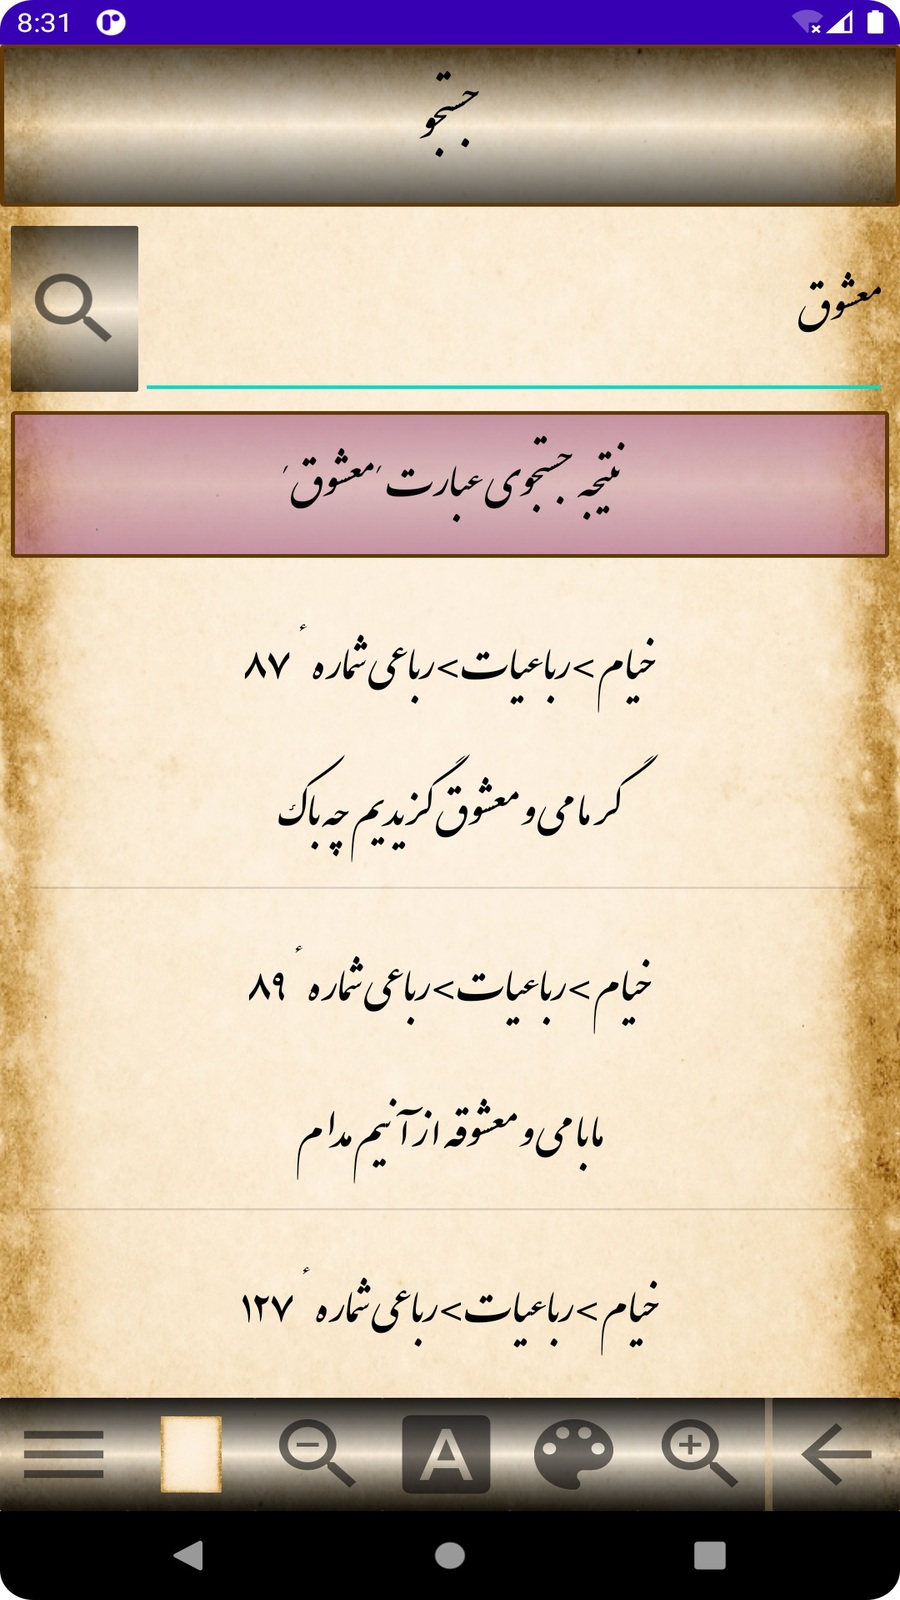 8:31
جستجو
معشوق
نتیجه جستجوی عبارت 'معشوق'
خیام > رباعیات > رباعی شمارهٔ ۸۷
گر ما می و معشوق گزیدیم چه باک
خیام > رباعیات > رباعی شمارهٔ ۸۹
ما با می و معشوقه از آنیم مدام
خیام > رباعیات > رباعی شمارهٔ ۱۲۷
A